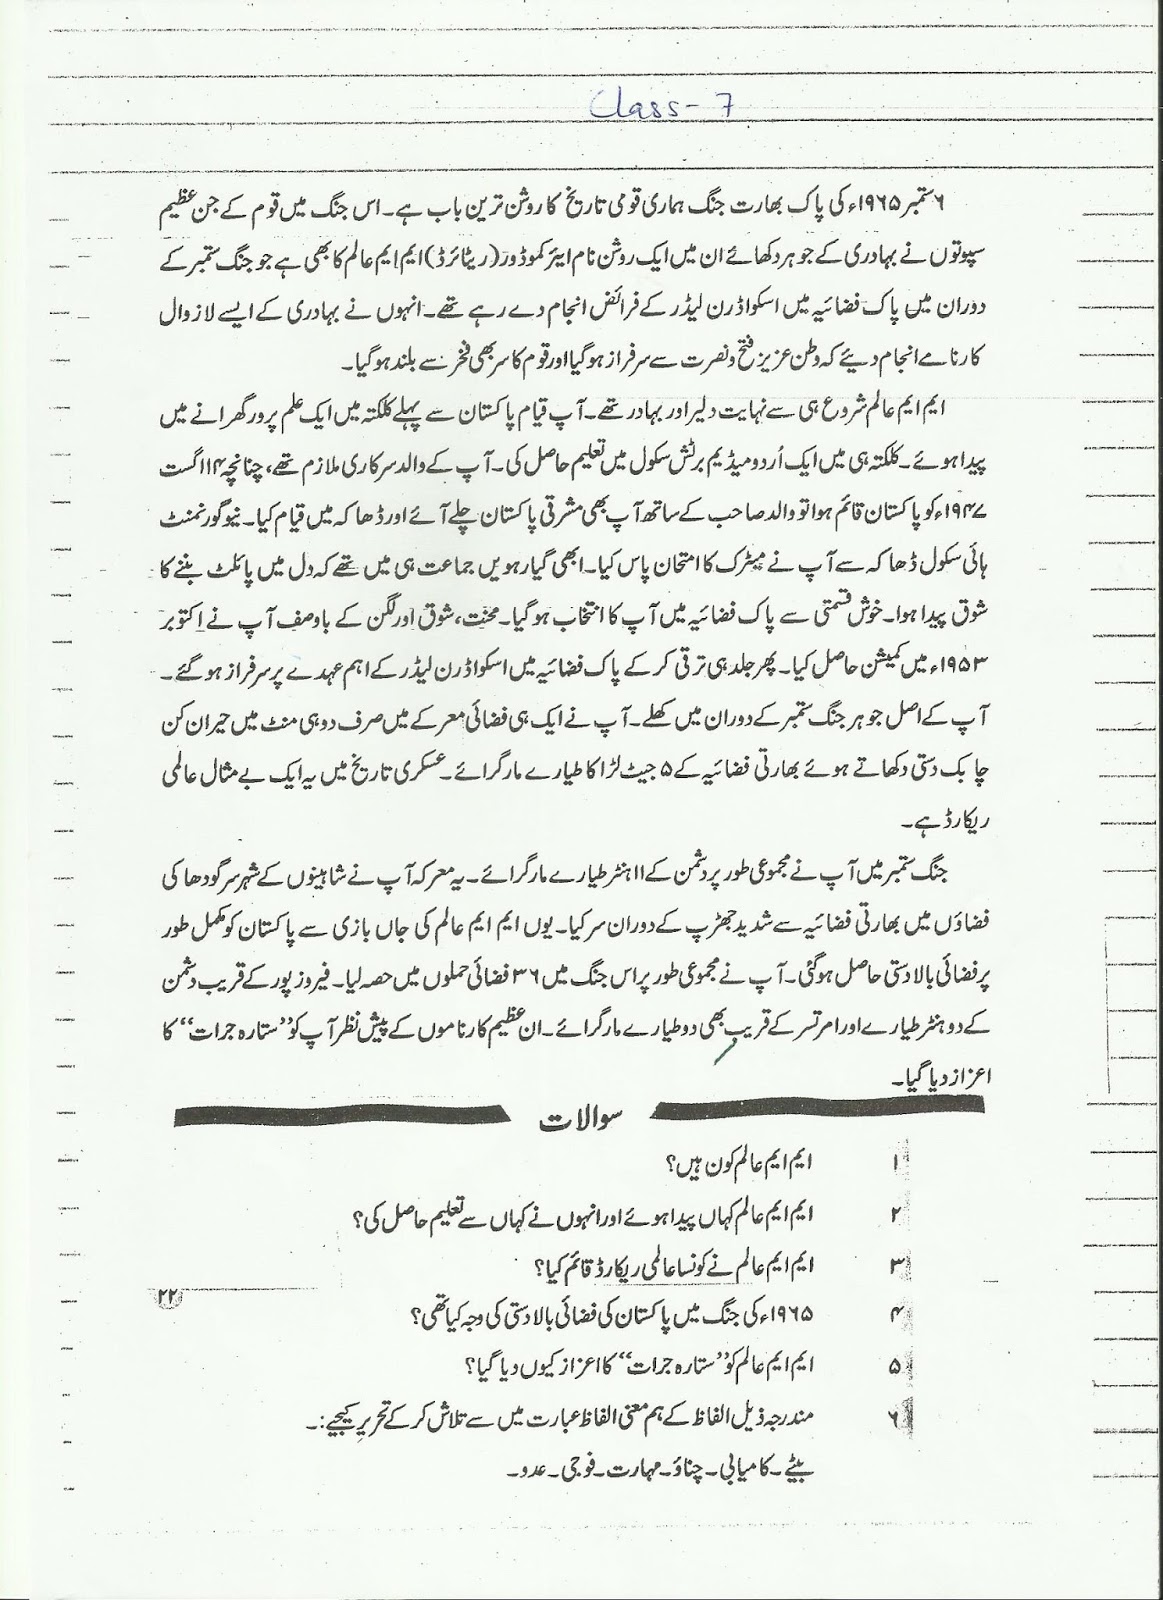 Class-7
۶ ستمبر ۱۹۶۵ء کی پاک بھارت جنگ ہماری قومی تاریخ کا روشن ترین باب ہے۔ اس جنگ میں قوم کے جن عظیم
سپوتوں نے بہادری کے جوہر دکھائے ان میں ایک روشن نام ایئر کموڈور (ریٹائرڈ) ایم ایم عالم کا بھی ہے جو جنگ ستمبر کے
دوران میں پاک فضائیہ میں اسکواڈرن لیڈر کے فرائض انجام دے رہے تھے۔ انہوں نے بہادری کے ایسے لازوال
کارنامے انجام دیئے کہ وطن عزیز فتح و نصرت سے سرفراز ہو گیا اور قوم کا سر بھی فخر سے بلند ہو گیا۔
ایم ایم عالم شروع ہی سے نہایت دلیر اور بہادر تھے۔ آپ قیام پاکستان سے پہلے کلکتہ میں ایک علم پرور گھرانے میں
پیدا ہوئے۔ کلکتہ ہی میں ایک اُردو میڈیم برٹش سکول میں تعلیم حاصل کی۔ آپ کے والد سرکاری ملازم تھے، چنانچہ ۱۴ اگست
۱۹۴۷ء کو پاکستان قائم ہوا تو والد صاحب کے ساتھ آپ بھی مشرقی پاکستان چلے آئے اور ڈھاکہ میں قیام کیا۔ نیو گورنمنٹ
ہائی سکول ڈھاکہ سے آپ نے میٹرک کا امتحان پاس کیا۔ ابھی گیارہویں جماعت ہی میں تھے کہ دل میں پائلٹ بننے کا
شوق پیدا ہوا۔ خوش قسمتی سے پاک فضائیہ میں آپ کا انتخاب ہو گیا۔ محنت، شوق اور لگن کے باوصف آپ نے اکتوبر
۱۹۵۳ء میں کمیشن حاصل کیا۔ پھر جلد ہی ترقی کر کے پاک فضائیہ میں اسکواڈرن لیڈر کے اہم عہدے پر سرفراز ہو گئے۔
آپ کے اصل جوہر جنگ ستمبر کے دوران میں کھلے۔ آپ نے ایک ہی فضائی معرکے میں صرف دو ہی منٹ میں حیران کن
چابک دستی دکھاتے ہوئے بھارتی فضائیہ کے ۵ جیٹ لڑاکا طیارے مار گرائے۔ عسکری تاریخ میں یہ ایک بے مثال عالمی
ریکارڈ ہے۔
جنگ ستمبر میں آپ نے مجموعی طور پر دشمن کے ۱۱ ہنٹر طیارے مار گرائے۔ یہ معرکہ آپ نے شاہینوں کے شہر سرگودھا کی
فضاؤں میں بھارتی فضائیہ سے شدید جھڑپ کے دوران سر کیا۔ یوں ایم ایم عالم کی جاں بازی سے پاکستان کو مکمل طور
پر فضائی بالادستی حاصل ہو گئی۔ آپ نے مجموعی طور پر اس جنگ میں ۳۶ فضائی حملوں میں حصہ لیا۔ فیروز پور کے قریب دشمن
کے دو ہنٹر طیارے اور امرتسر کے قریب بھی دو طیارے مار گرائے۔ ان عظیم کارناموں کے پیش نظر آپ کو ”ستارہ جرات“ کا
اعزاز دیا گیا۔
سوالات
۱ ایم ایم عالم کون ہیں؟
۲ ایم ایم عالم کہاں پیدا ہوئے اور انہوں نے کہاں سے تعلیم حاصل کی؟
۳ ایم ایم عالم نے کونسا عالمی ریکارڈ قائم کیا؟
۲۲
۴ ۱۹۶۵ء کی جنگ میں پاکستان کی فضائی بالادستی کی وجہ کیا تھی؟
۵ ایم ایم عالم کو ”ستارہ جرات“ کا اعزاز کیوں دیا گیا؟
۶ مندرجہ ذیل الفاظ کے ہم معنی الفاظ عبارت میں سے تلاش کر کے تحریر کیجیے:۔
بیٹے۔ کامیابی۔ چناؤ۔ مہارت۔ فوجی۔ عدو۔